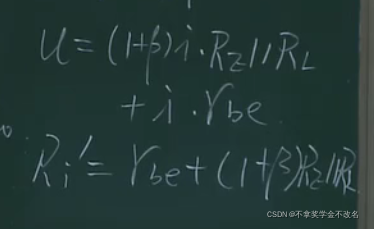 u=(1+β)i·R₂//R_L
+i·r_be
R_i'=r_be+(1+β)R₂//R_L
CSDN @不拿奖学金不改名